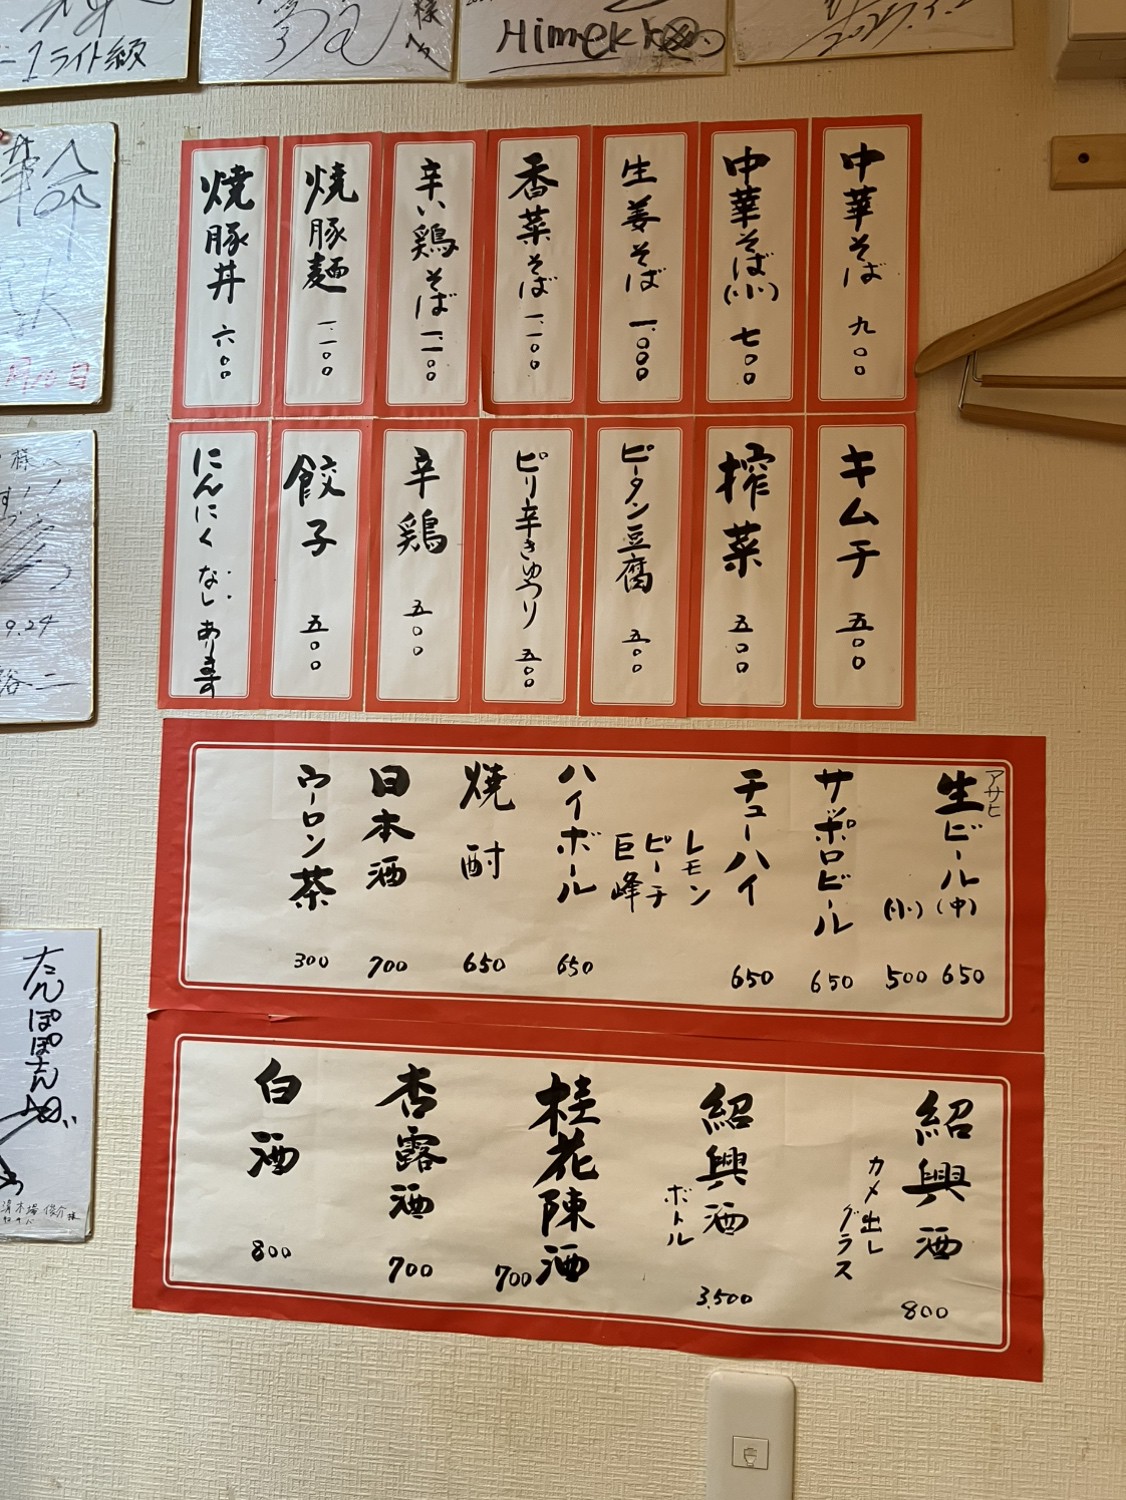 -1ライト級
様
Himekka
中華そば 九〇〇
中華そば(小) 七〇〇
生姜そば 一、〇〇〇
香菜そば 一、一〇〇
辛い鶏そば 一、一〇〇
焼豚麺 一、一〇〇
焼豚丼 六〇〇
キムチ 五〇〇
搾菜 五〇〇
ピータン豆腐 五〇〇
ピリ辛きゅうり 五〇〇
辛鶏 五〇〇
餃子 五〇〇
にんにく なし あります
アサヒ
生ビール(中) 650
(小) 500
サッポロビール 650
チューハイ 650
レモン
ピーチ
巨峰
ハイボール 650
焼酎 650
日本酒 700
ウーロン茶 300
紹興酒 800
カメ出し
グラス
紹興酒 3,500
ボトル
桂花陳酒 700
杏露酒 700
白酒 800
様
9.24
たんぽぽさん江